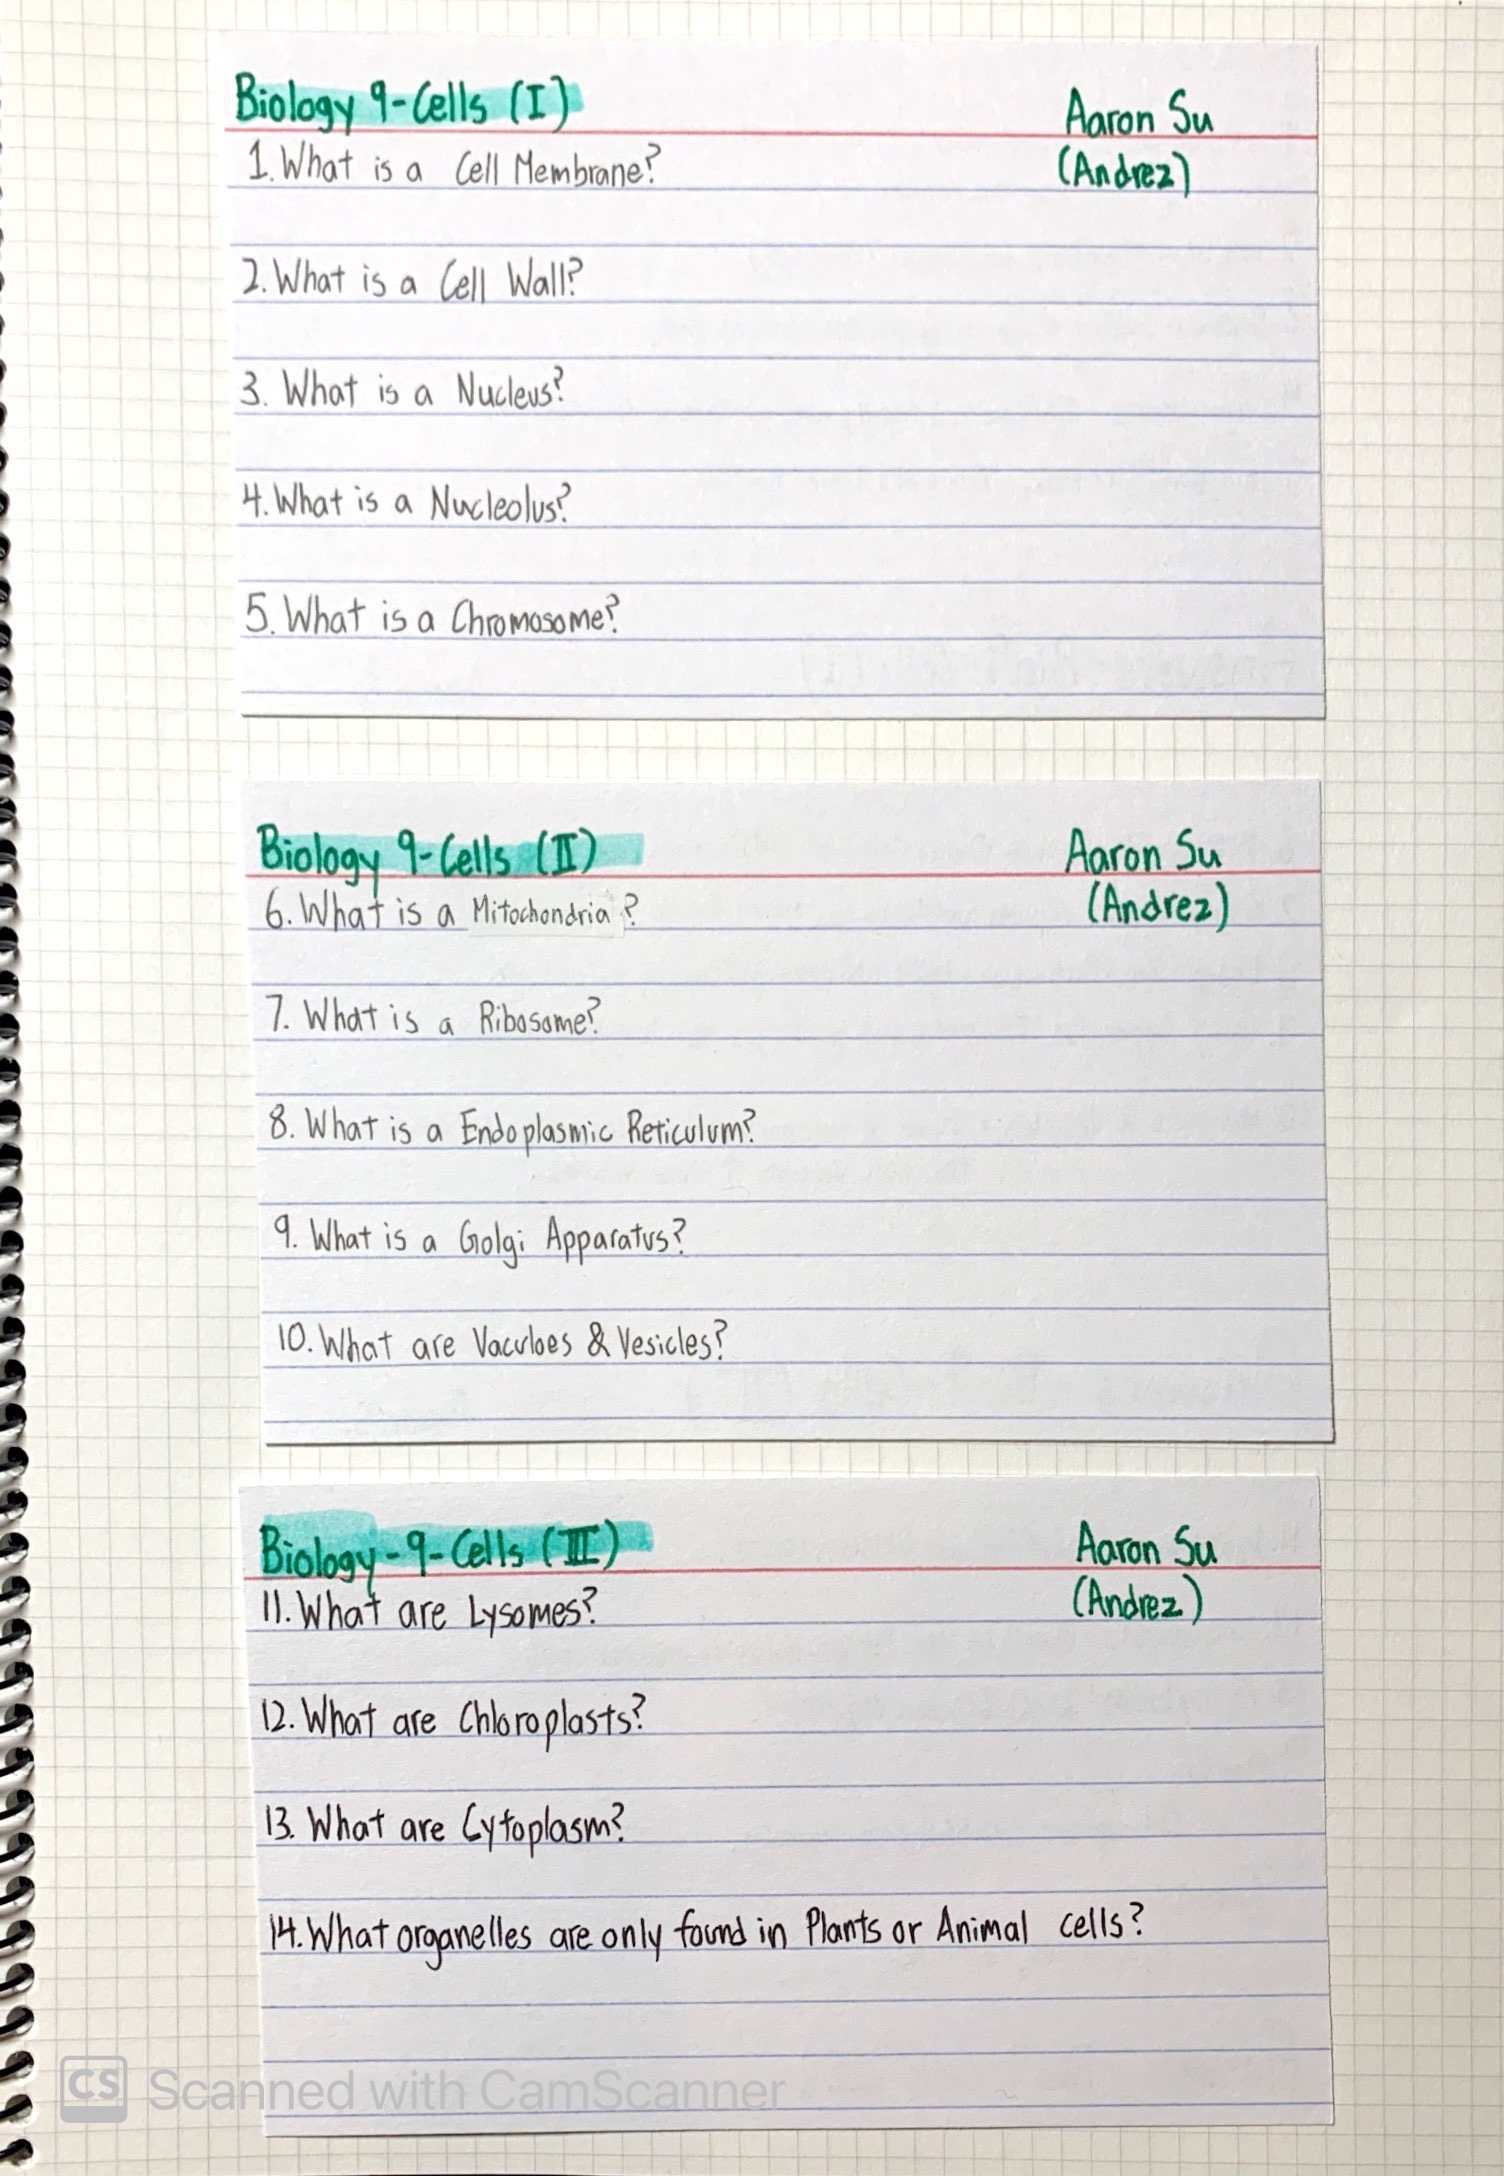 Biology 9-Cells (I)
Aaron Su
(Andrez)
1. What is a Cell Membrane?
2. What is a Cell Wall?
3. What is a Nucleus?
4. What is a Nucleolus?
5. What is a Chromosome?
Biology 9-Cells (II)
Aaron Su
(Andrez)
6. What is a Mitochondria?
7. What is a Ribosome?
8. What is a Endoplasmic Reticulum?
9. What is a Golgi Apparatus?
10. What are Vaculoes & Vesicles?
Biology-9-Cells (III)
Aaron Su
(Andrez)
11. What are Lysomes?
12. What are Chloroplasts?
13. What are Cytoplasm?
14. What organelles are only found in Plants or Animal cells?
CS Scanned with CamScanner